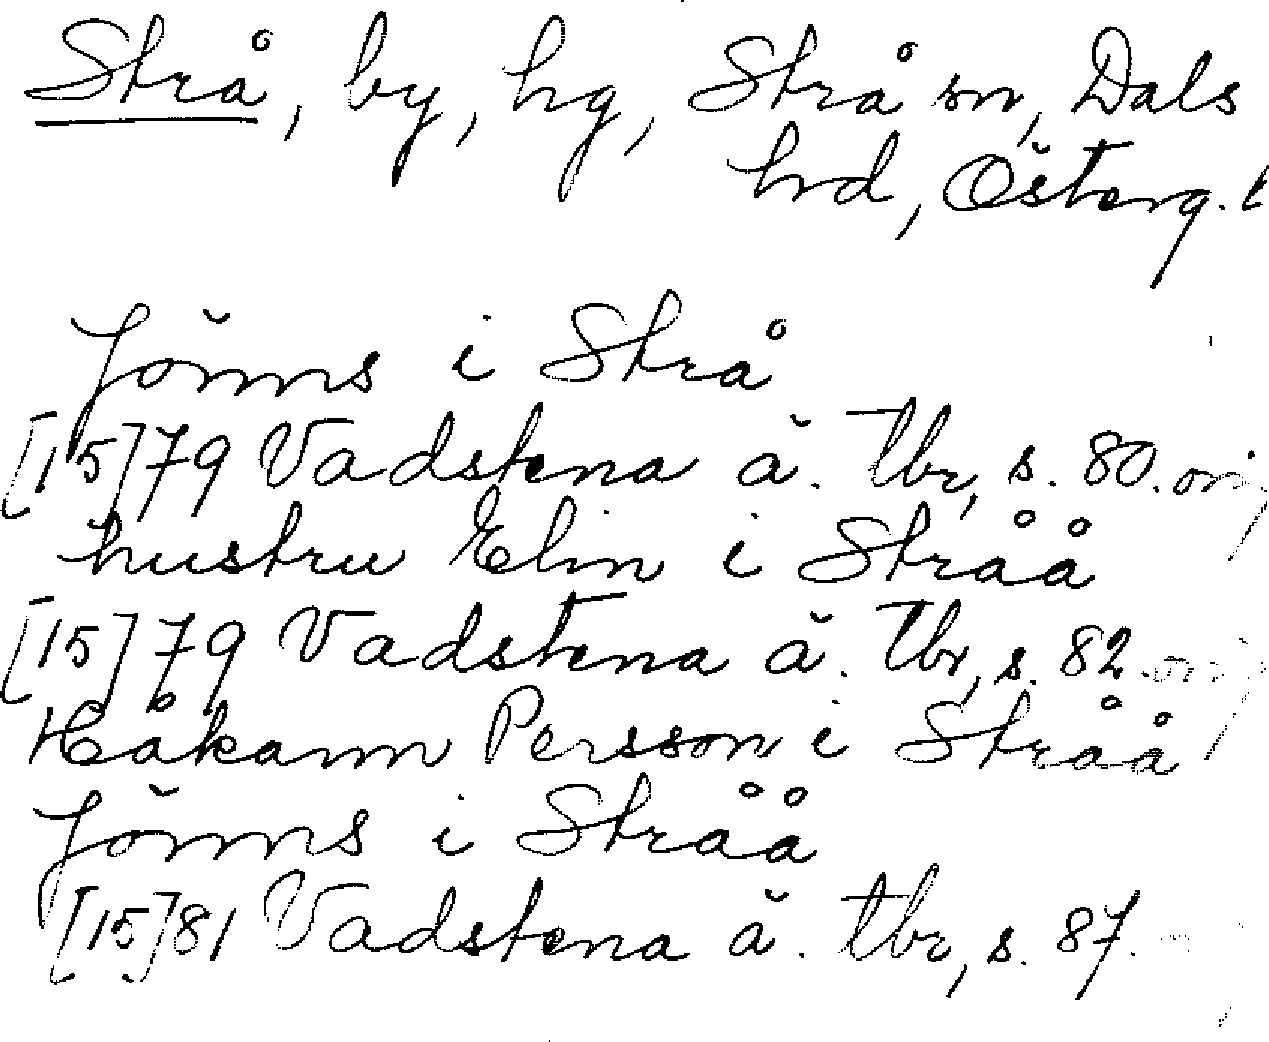 Strå, by, hg, Strå sn, Dals
hrd, Österg. l
Jönns i Strå
[15]79 Vadstena ä. tbr, s. 80. ori
hustru Elin i Stråå
[15]79 Vadstena ä. tbr, s. 82
Håkann Persson i Stråå
Jönns i Stråå
[15]81 Vadstena ä. tbr, s. 87.